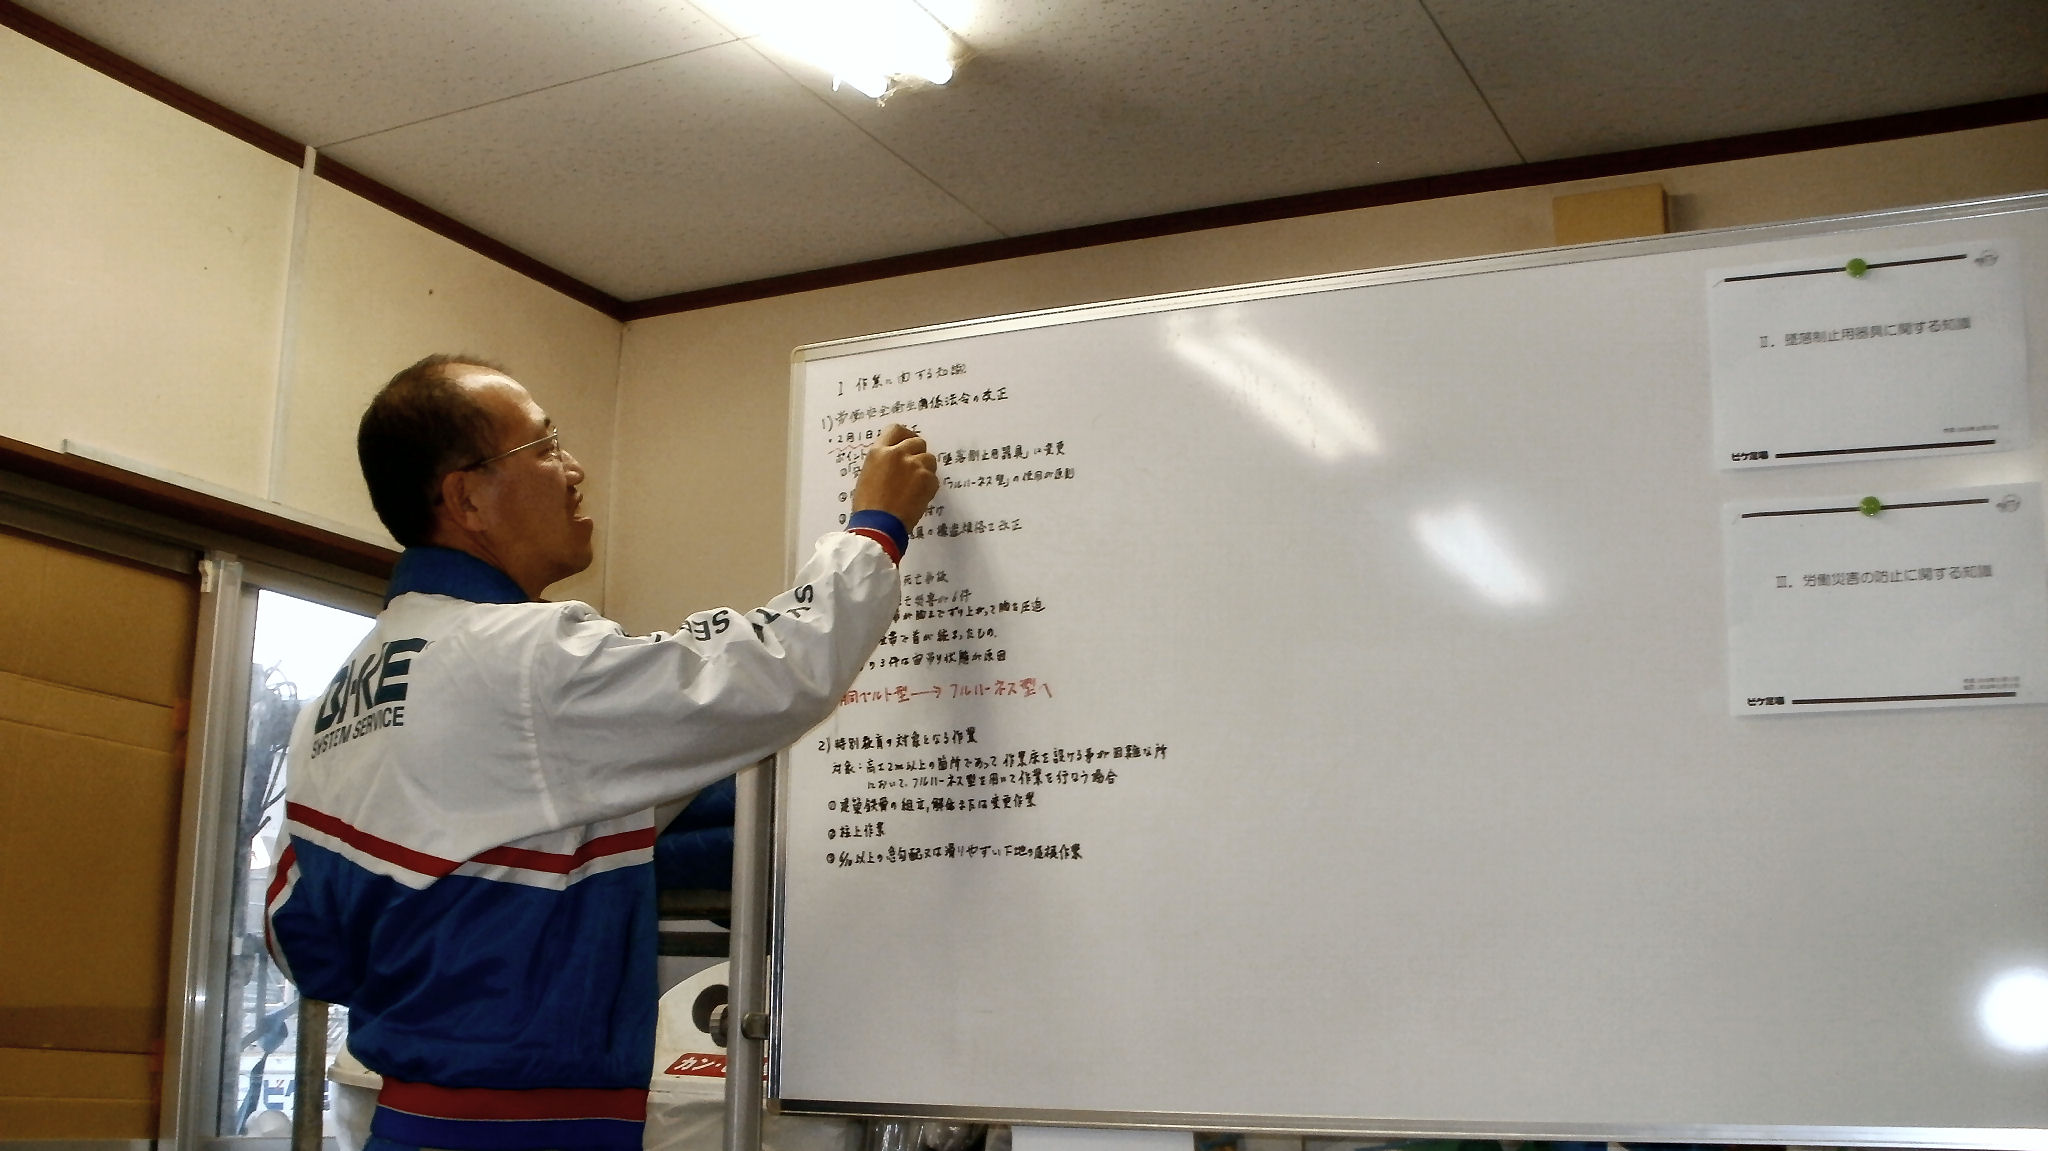 I 作業に関する知識
1) 労働安全衛生関係法令の改正
・2月1日 改正
ポイント
①「 「墜落制止用器具」に変更
② 「フルハーネス型」の使用が原則
③ 付け
具の構造規格を改正
死亡事故
亡災害が6件
が胸までずり上がって胸を圧迫
全帯で首が絞まったもの.
の3件は宙吊り状態が原因
胴ベルト型→フルハーネス型へ
2) 特別教育の対象となる作業
対象：高さ2m以上の箇所であって作業床を設ける事が困難な所
において、フルハーネス型を用いて作業を行なう場合
① 建築鉄骨の組立,解体または変更作業
② 柱上作業
③ 6/10以上の急勾配又は滑りやすい下地の屋根作業
Ⅱ．墜落制止用器具に関する知識
ビケ足場
Ⅲ．労働災害の防止に関する知識
ビケ足場
BIKE
SYSTEM SERVICE
カン・